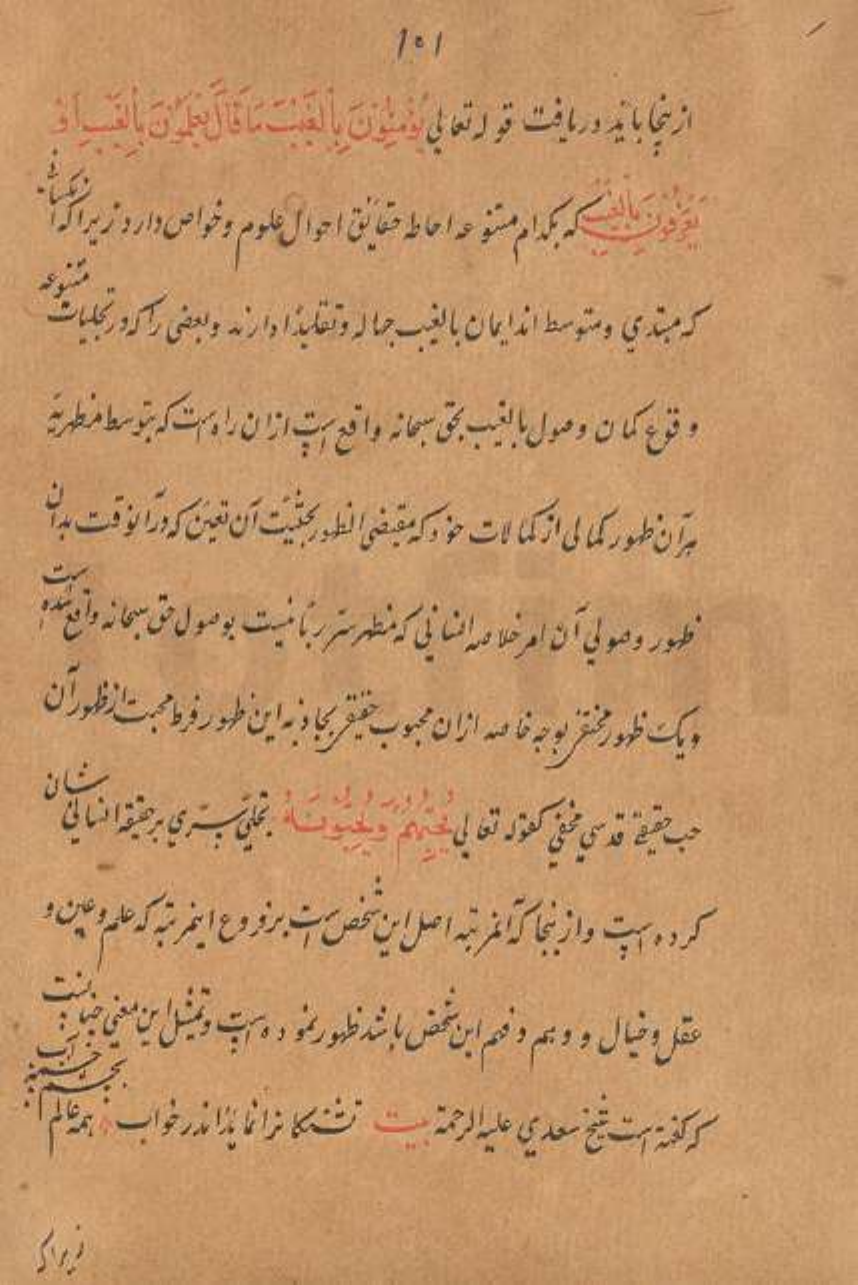 ۱۵۱
ازینجا باید دریافت قوله تعالی یُؤْمِنُوْنَ بِالْغَیْبِ مَا قَالَ یَعْلَمُوْنَ بِالْغَیْبِ اَوْ
یَعْرِفُوْنَ بِالْغَیْبِ که بکدام متنوعه احاطه حقایق احوال علوم و خواص دارد زیرا که آنکسانی
که مبتدی و متوسط اند ایمان بالغیب جهاله و تقلیدًا دارند و بعضی را که در تجلیات متنوعه
وقوع کمان وصول بالغیب بحق سبحانه واقع است ازان راه است که بتوسط مظهریة
هرآن ظهور کمالی از کمالات خود که مقتضی الظهور بحیثیت آن تعین که در آنوقت بدان
ظهور وصولی آن امر خلاصه انسانی که مظهر سر ربانیست بوصول حق سبحانه واقع شده است
ویک ظهور مختفی بوجه خاصه ازان محبوب حقیقی بجاذبه این ظهور فرط محبت از ظهور آن
حب حقیقة قدسی مخفی کقوله تعالی یُحِبُّهُمْ وَیُحِبُّوْنَهُ بتجلیّ سِرّی بر حقیقة انسانی شان
کرده است و ازینجا که آنمرتبه اصل این شخص است بر فروع اینمرتبه که علم و عین و
عقل و خیال و وهم و فهم این شخص باشد ظهور نموده است و تمثیل این معنی چنانست
که گفته است شیخ سعدی علیه الرحمة بیت تشنکانرا نماید اندر خواب ٭ همه عالم بچشم چشمه آب
زیراکه